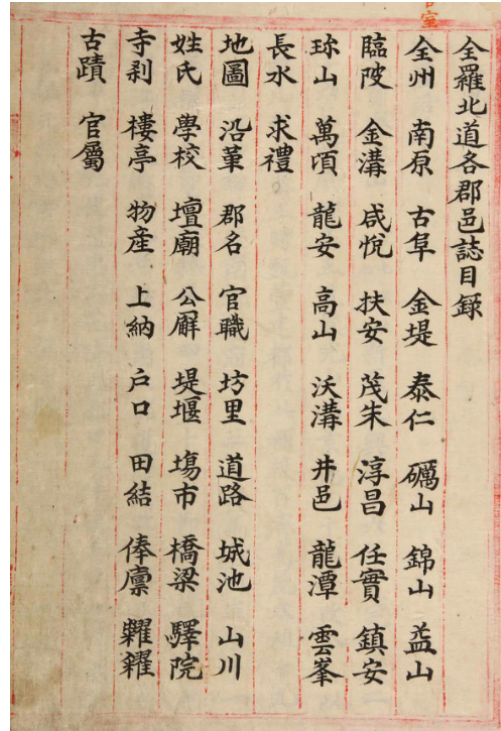 全羅北道各郡邑誌目錄
全州 南原 古阜 金堤 泰仁 礪山 錦山 益山
臨陂 金溝 咸悅 扶安 茂朱 淳昌 任實 鎮安
珎山 萬頃 龍安 高山 沃溝 井邑 龍潭 雲峯
長水 求禮
地圖 沿革 郡名 官職 坊里 道路 城池 山川
姓氏 學校 壇廟 公廨 堤堰 塲市 橋梁 驛院
寺刹 樓亭 物産 上納 戶口 田結 俸廩 糶糴
古蹟 官屬